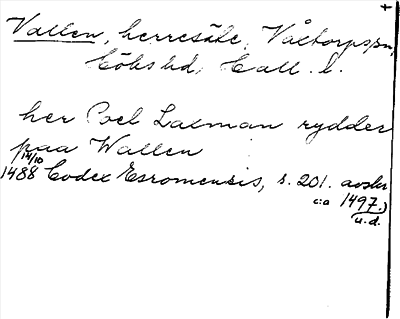 +
Vallen, herresäte, Våxtorps sn,
Höks hd, Hall. l.
her Poel Laxman rydder
paa Wallen
14/10
1488 Codex Esromensis, s. 201. avskr
c:a 1497.)
u.d.